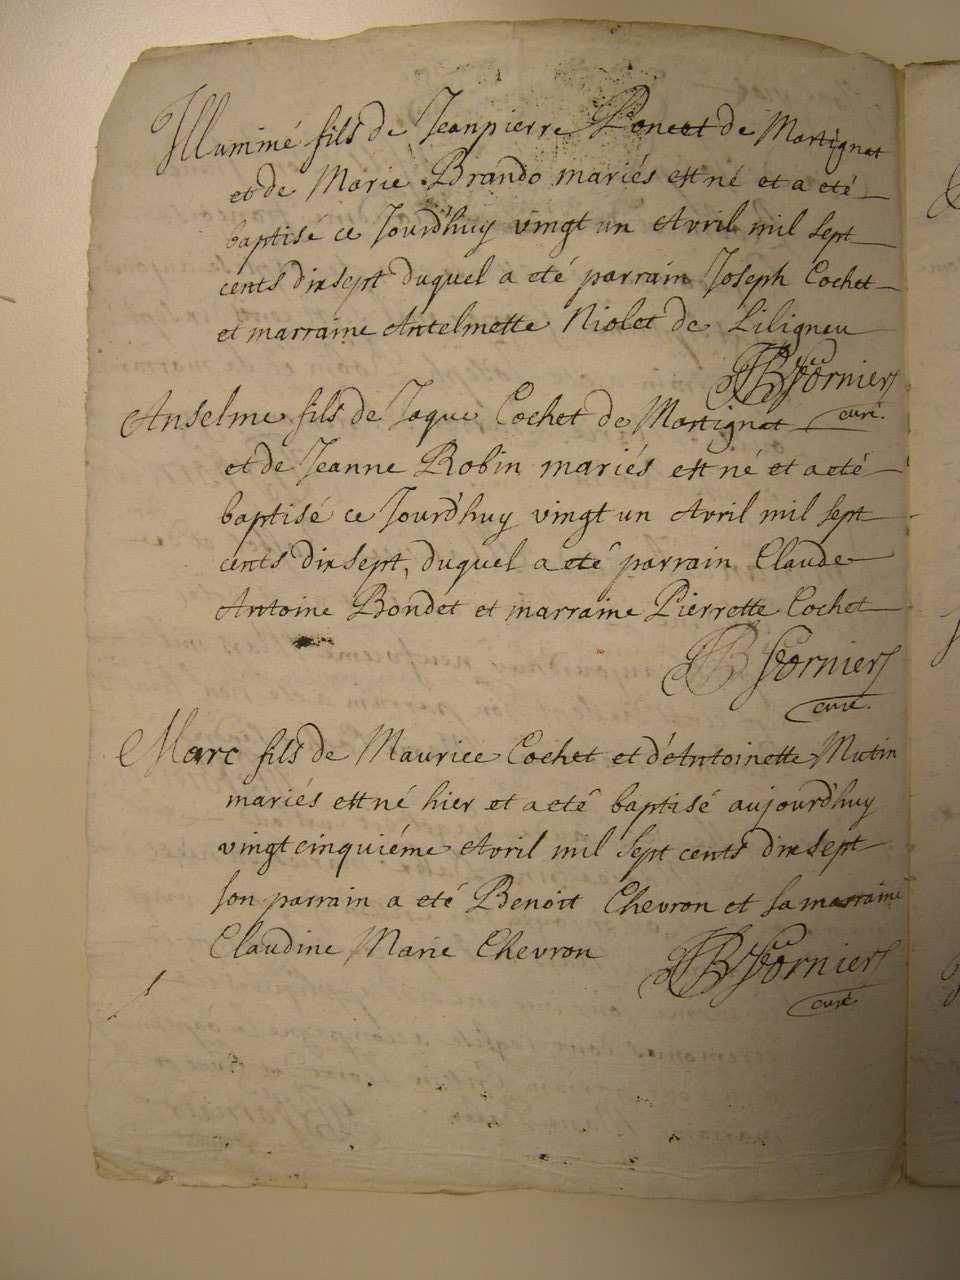 Illuminé fils de Jeanpierre Poncet de Martignat
et de Marie Brando mariés est né et a eté
baptisé ce Jourd'huy vingt un Avril mil sept
cents dix sept duquel a eté parrain Joseph Cochet
et marraine Antelmette Niolet de Liligneu
JB Fornier
curé.
Anselme fils de Jaque Cochet de Martignat
et de Jeanne Robin mariés est né et a eté
baptisé ce Jourd'huy vingt un Avril mil sept
cents dix sept, duquel a eté parrain Claude
Antoine Bondet et marraine Pierrette Cochet
JB Fornier
curé.
Marc fils de Maurice Cochet et d'Antoinette Mutin
mariés est né hier et a eté baptisé aujourd'huy
vingt cinquiéme Avril mil sept cents dix sept
son parrain a eté Benoit Chevron et sa marraine
Claudine Marie Chevron
JB Fornier
curé